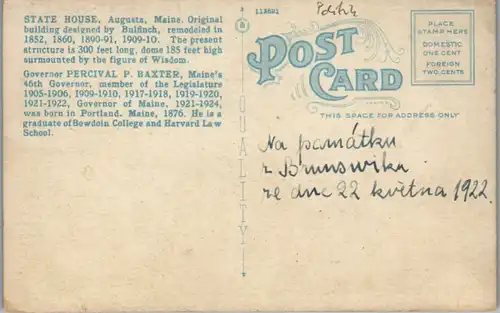 STATE HOUSE, Augusta, Maine. Original
building designed by Bulfinch, remodeled in
1852, 1860, 1890-91, 1909-10. The present
structure is 300 feet long, dome 185 feet high
surmounted by the figure of Wisdom.
Governor PERCIVAL P. BAXTER, Maine's
46th Governor, member of the Legislature
1905-1906, 1909-1910, 1917-1918, 1919-1920,
1921-1922, Governor of Maine, 1921-1924,
was born in Portland. Maine, 1876. He is a
graduate of Bowdoin College and Harvard Law
School.
QUALITY
113821
POST
CARD
PLACE
STAMP HERE
DOMESTIC
ONE CENT
FOREIGN
TWO CENTS
THIS SPACE FOR ADDRESS ONLY
Na památku
z Brunswiku
ze dne 22 května 1922.